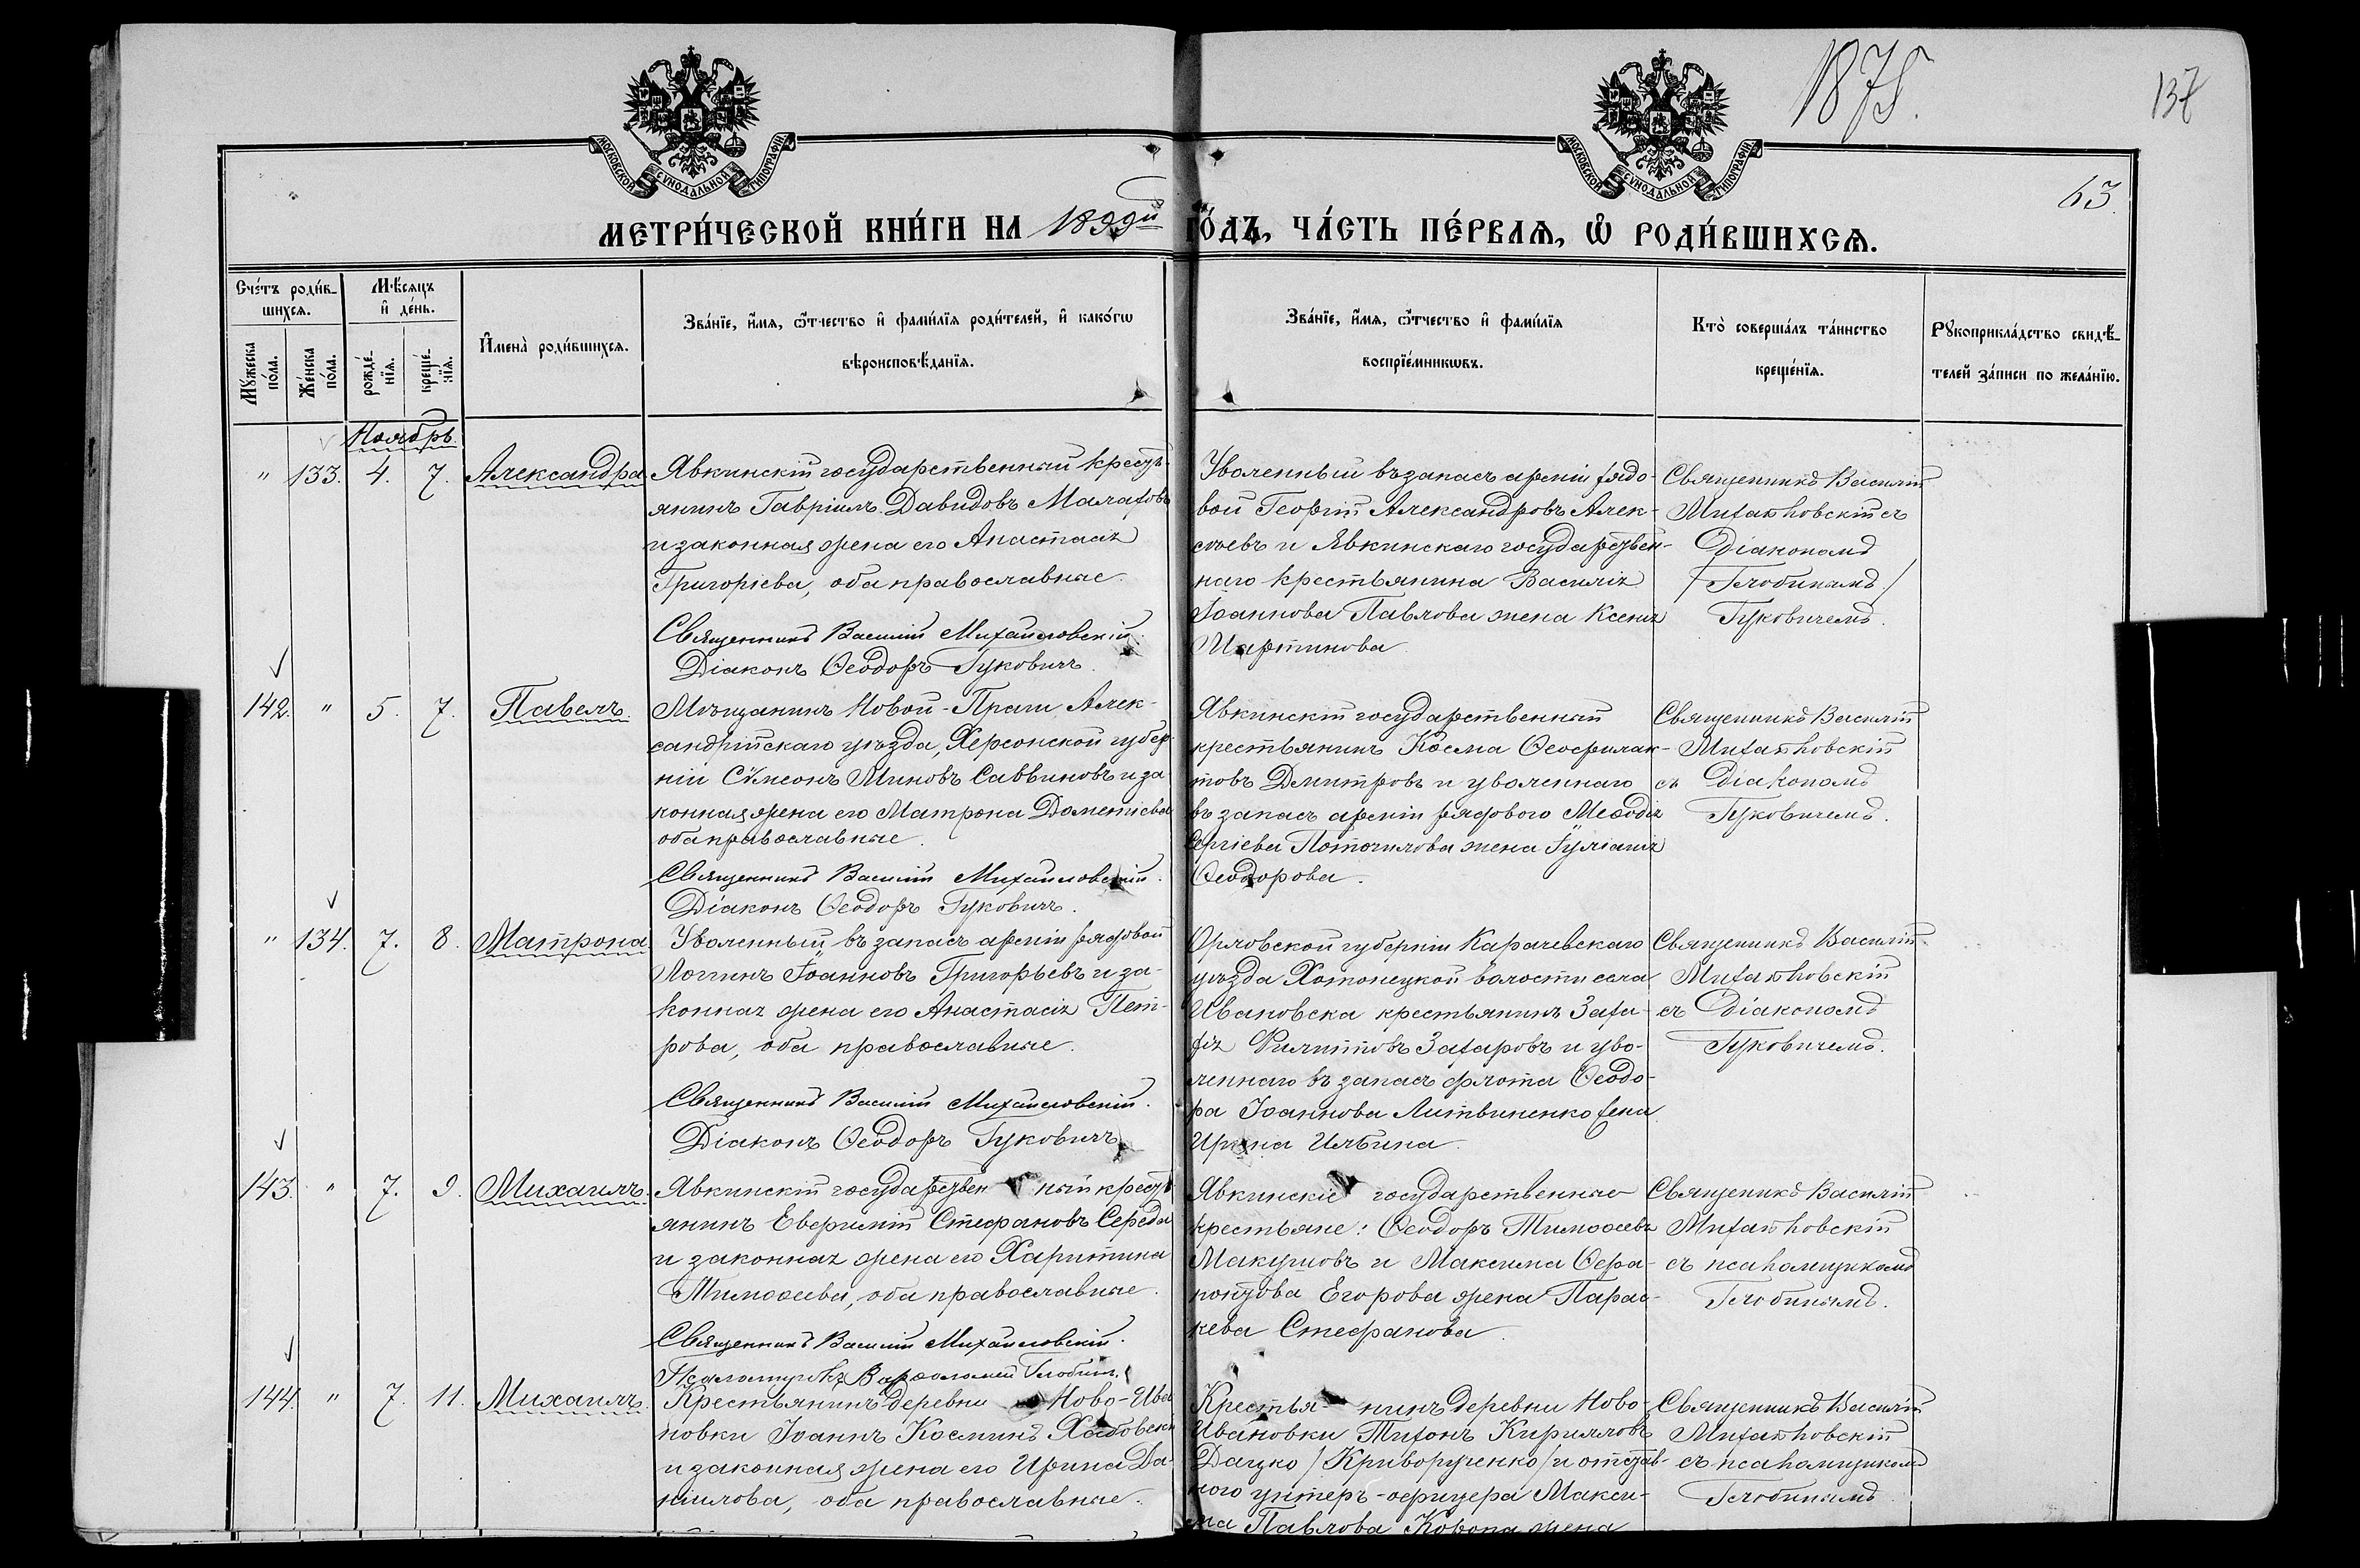 1875.
137
63.
МОСКОВСКОЙ СѴНОДАЛЬНОЙ ТИПОГРАФІИ
МОСКОВСКОЙ СѴНОДАЛЬНОЙ ТИПОГРАФІИ
МЕТРИ́ЧЕСКОЙ КНИ́ГИ НА 1899й ГО́ДЪ, ЧА́СТЬ ПЕ́РВАѦ, Ѡ҆ РОДИ́ВШИХСѦ.
Сче́тъ роди́в-
шихсѧ.
Мѣ́сѧцъ
и҆ де́нь.
И҆мена̀ роди́вшихсѧ.
Зва́нїе, и҆́мѧ, ѻ҆́тчество и҆ фами́лїѧ роди́телей, и҆ како́гѡ
вѣроисповѣ́данїѧ.
Зва́нїе, и҆́мѧ, ѻ҆́тчество и҆ фами́лїѧ
воспрїе́мникѡвъ.
Кто̀ соверша́лъ та́инство
креще́нїѧ.
Рꙋкоприкла́дство свидѣ́-
телей за́писи по жела́нїю.
Мꙋ́жеска
по́ла.
Же́нска
по́ла.
рожде́-
нїѧ.
креще́-
нїѧ.
Ноябрь.
" 133. 4. 7. Александра
Явкинскій государственный кресть-
янинъ Гавріилъ Давидовъ Малаховъ
и законная жена его Анастасія
Григоріева, оба православные.
Священникъ Василій Михайловскій.
Діаконъ Ѳеодоръ Гуковичъ.
Уволенный въ запасъ арміи рядо-
вой Георгій Александровъ Алек-
сѣевъ и Явкинскаго государствен-
наго крестьянина Василія
Іоаннова Павлова жена Ксенія
Мартинова.
Священникъ Василій
Михайловскій съ
Діакономъ
/Глобинымъ/
Гуковичемъ.
142. " 5. 7. Павелъ.
Мѣщанинъ Новой-Праги Алек-
сандрійскаго уѣзда, Херсонской губер-
ніи Сѵмеонъ Миновъ Саввиновъ и за
конная жена его Матрона Дометіева
оба православные.
Священникъ Василій Михайловскій.
Діаконъ Ѳеодоръ Гуковичъ.
Явкинскій государственный
крестьянинъ Косма Ѳеофилак-
товъ Дмитровъ и уволеннаго
въ запасъ арміи рядового Меѳодія
Сергіева Поточилова жена Іуліанія
Ѳеодорова.
Священникъ Василій
Михайловскій
съ Діакономъ
Гуковичемъ.
" 134. 7. 8. Матрона.
Уволенный въ запасъ арміи рядовой
Логгинъ Іоанновъ Григорьевъ и за-
конная жена его Анастасія Пет-
рова, оба православные.
Священникъ Василій Михайловскій.
Діаконъ Ѳеодоръ Гуковичъ.
Орловской губерніи Карачевскаго
уѣзда Хотонецкой волости села
Ивановска крестьянинъ Заха-
рія Филипповъ Захаровъ и уво-
леннаго въ запасъ флота Ѳеодо-
ра Іоаннова Литвиненко жена
Ирина Ильина.
Священникъ Василій
Михайловскій
съ Діакономъ
Гуковичемъ.
143. " 7. 9. Михаилъ.
Явкинскій государственный кресть
янинъ Евфимій Стефановъ Середа
и законная жена его Харитина
Тимоѳеева, оба православные.
Священникъ Василій Михайловскій.
Псаломщикъ Варѳоломей Глобинъ.
Явкинскіе государственные
крестьяне: Ѳеодоръ Тимоѳеевъ
Макушовъ и Максима Ѳера-
понтова Егорова жена Парас-
кева Стефанова.
Священникъ Василій
Михайловскій
съ псаломщикомъ
Глобинымъ.
144. " 7. 11. Михаилъ.
Крестьянинъ деревни Ново-Ива
новки Іоаннъ Косминъ
и законная жена его Ирина Да-
ніилова, оба православные.
Крестьянинъ деревни Ново-
Ивановки Тихонъ Кирилловъ
Дацко /Криворученко/ и отстав-
ного унтеръ-офицера Макси-
ма Павлова Корона жена
Священникъ Василій
Михайловскій
съ псаломщикомъ
Глобинымъ